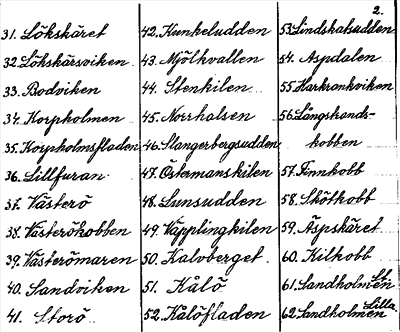 2.
31. Lökskäret
32. Lökskärsviken
33. Bodviken
34. Korpholmen
35. Korpholmsfladen
36. Lillfuran
37. Västerö
38. Västerökobben
39. Västerömaren
40. Sandviken
41. Storö
42. Kunkeludden
43. Mjölkvallen
44. Stenkilen
45. Norrhalsen
46. Stangerbergsudden
47. Östermanskilen
48. Lunsudden
49.Väpplingkilen
50. Kaloberget
51. Kålö
52. Kålöfladen
53. Lindskatsudden
54. Aspdalen
55. Harkrankviken
56. Långstrands-
kobben
57. Finnkobb
58. Skötkobb
59. Äspskäret
60. Kilkobb
61. Sandholmen St.
62. Sandholmen Lilla